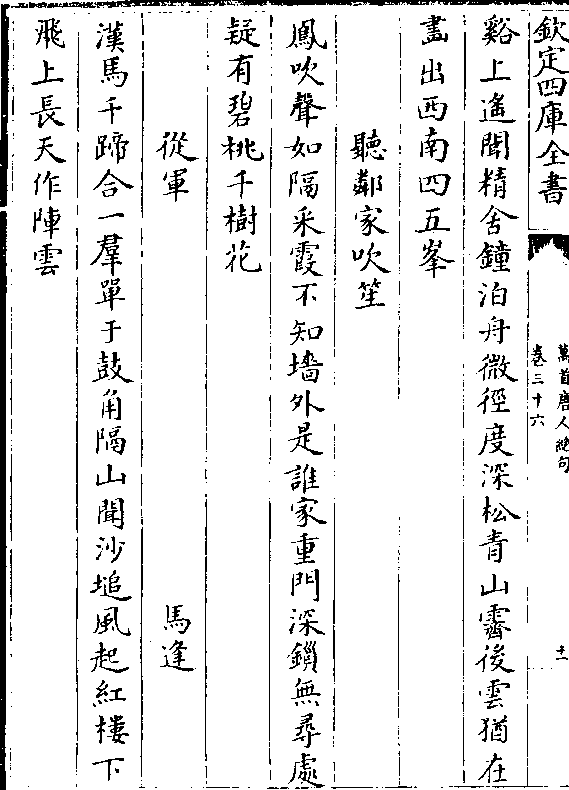 欽定四庫全書
萬首唐人絶句
卷三十六
十一
谿上遙聞精舍鐘泊舟微徑度深松青山霽後雲猶在
畫出西南四五峯
聽鄰家吹笙
鳳吹聲如隔采霞不知墻外是誰家重門深鎖無尋處
疑有碧桃千樹花
從軍
馬逢
漢馬千蹄合一羣單于鼓角隔山聞沙塠風起紅樓下
飛上長天作陣雲